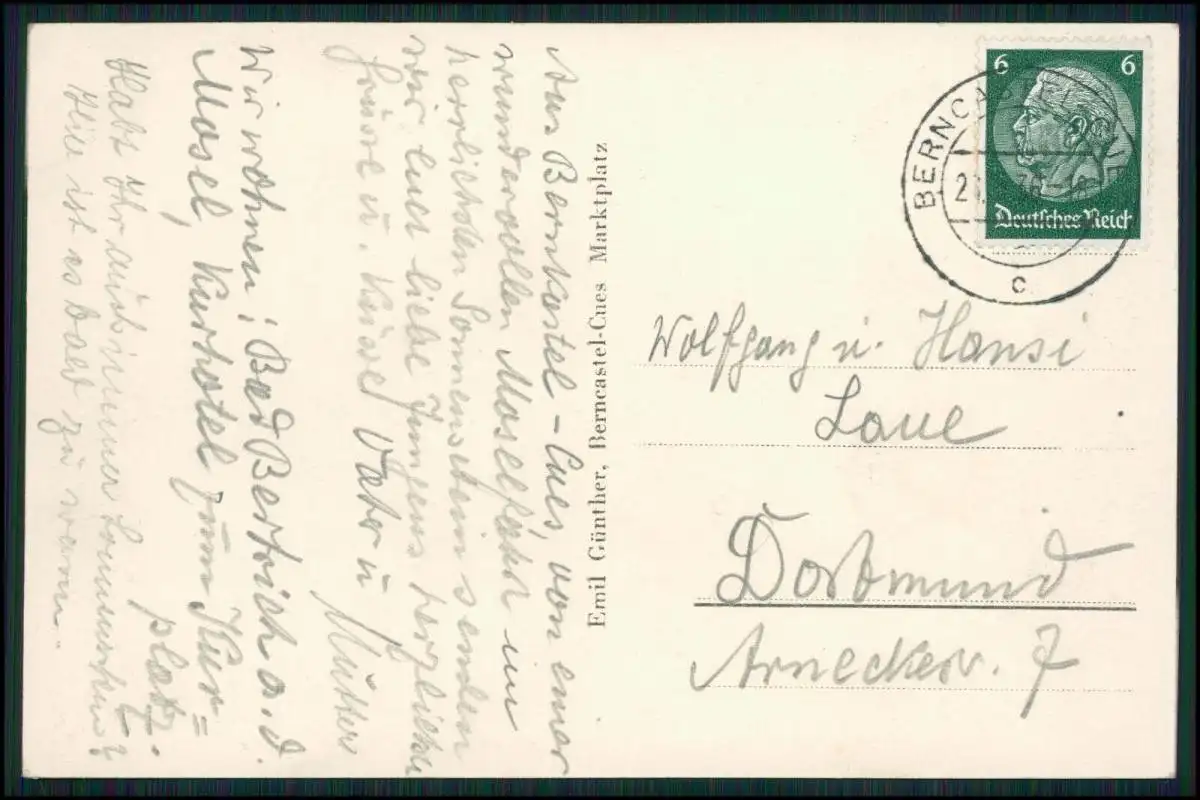 Aus Bernkastel-Cues, von einer
wundervollen Moselfahrt im
herrlichsten Sonnenschein senden
wir Euch liebe Jungens herzliche
Grüsse u. Küsse Vater u
Mutter
Wir wohnen: Bad Bertrich a.d.
Mosel, Kurhotel zum Kur=
platz.
Habt Ihr auch immer Sonnenschein?
Hier ist es bald zu warm.
Emil Günther, Berncastel-Cues Marktplatz
6 6
Deutsches Reich
BERNCA
c
Wolfgang u. Hansi
Laue
Dortmund
Arneckestr. 7